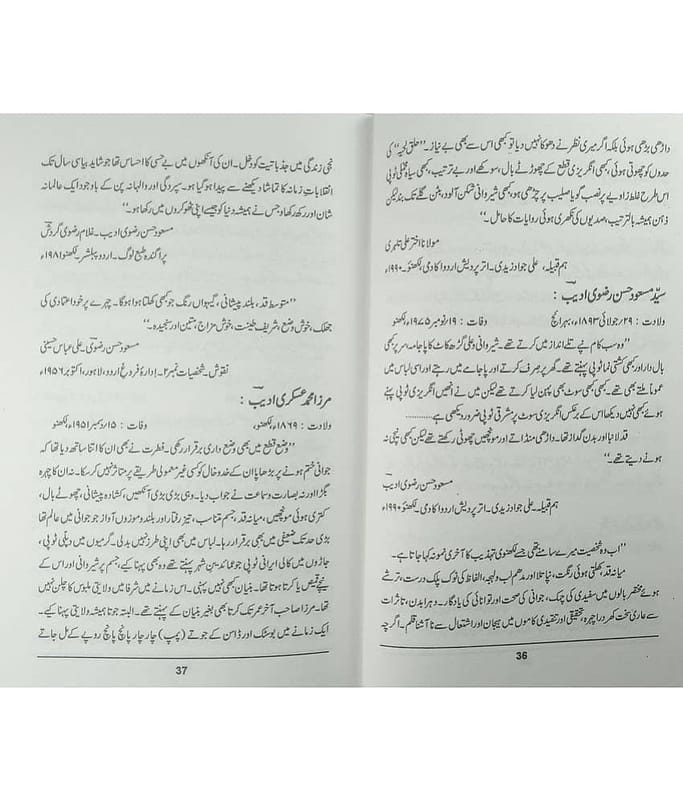 داڑھی بڑھی ہوئی بلکہ اگر میری نظر نے دھوکا نہیں دیا تو کبھی اس سے بھی بے نیاز۔ "حلق لحیہ" کی
حدوں کو چھوتی ہوئی، کبھی انگریزی قطع کے چھوٹے بال، سوکھے اور بے ترتیب، کبھی سیاہ مخملی ٹوپی
اس طرح غلط زاویے پر نصب گویا صلیب پر چڑھی ہو، کبھی شیروانی شکن آلود، بٹن گلے تک بند لیکن
ذہن ہمیشہ بالترتیب، صدیوں کی نکھری ہوئی روایات کا حامل۔"
مولانا اختر علی تلہری
ہم قبیلہ۔ علی جواد زیدی۔ اتر پردیش اردو اکادمی، لکھنؤ۔ ۱۹۹۰ء
سیّد مسعود حسن رضوی ادیب :
ولادت : ۲۹/جولائی ۱۸۹۳ء، بہرائچ وفات : ۱۹/نومبر ۱۹۷۵ء، لکھنؤ
"وہ سب کام نپے تلے انداز میں کرتے تھے۔ شیروانی و علی گڑھ کاٹ کا پاجامہ۔ سر پر کبھی
بال دار اور کبھی کشتی نما ٹوپی پہنتے تھے۔ گھر پر صرف کرتے اور پاجامے میں رہتے اور اسی لباس میں
عموماً ملتے بھی تھے۔ کبھی کبھی سوٹ بھی پہن لیا کرتے تھے لیکن میں نے انھیں انگریزی ٹوپی پہنے
ہوئے کبھی نہیں دیکھا اس کے برعکس انگریزی سوٹ پر مشرقی ٹوپی ضرور دیکھی ہے............
قد لانبا اور بدن گداز تھا۔ داڑھی منڈاتے اور مونچھیں چھوٹی رکھتے تھے لیکن کبھی نیچی نہ
ہونے دیتے تھے۔"
مسعود حسن رضوی ادیب
ہم قبیلہ۔ علی جواد زیدی۔ اتر پردیش اردو اکادمی، لکھنؤ۔ ۱۹۹۰ء
"اب وہ شخصیت میرے سامنے تھی جسے لکھنوی تہذیب کا آخری نمونہ کہا جاتا ہے۔
میانہ قد، کھلتی ہوئی رنگت، نپا تلا اور مدھم لب و لہجہ، الفاظ کی نوک پلک درست، ترشے
ہوئے مختصر بالوں میں سفیدی کی چمک، جوانی کی صحت اور توانائی کی یادگار۔ دوہرا بدن، تاثرات
سے عاری سخت کھردرا چہرہ، تحقیقی اور تنقیدی کاموں میں ہیجان اور اشتعال سے نا آشنا قلم۔ اگرچہ
36
نجی زندگی میں جذباتیت کو دخل۔ ان کی آنکھوں میں بے حسی کا احساس تھا جو شاید بیاسی سال تک
انقلابات زمانہ کا تماشا دیکھنے سے پیدا ہو گیا ہو۔ سپردگی اور والہانہ پن کے باوجود ایک عالمانہ
شان اور رکھ رکھاؤ جس نے ہمیشہ دنیا کو جیسے اپنی ٹھوکروں میں رکھا ہو۔"
مسعود حسن رضوی ادیب۔ غلام رضوی گردش
پراگندہ طبع لوگ۔ اردو پبلشر۔ لکھنؤ ۱۹۸۱ء
"متوسط قد، بلند پیشانی، گیہواں رنگ جو کبھی کھلتا ہوا ہوگا۔ چہرے پر خود اعتمادی کی
جھلک، خوش وضع، شریف طینت، خوش مزاج، متین اور سنجیدہ۔"
مسعود حسن رضوی۔ علی عباس حسینی
نقوش۔ شخصیات نمبر ۲۔ ادارۂ فروغ اردو، لاہور، اکتوبر ۱۹۵۶ء
مرزا محمد عسکری ادیب :
ولادت : ۱۸۶۹ء، لکھنؤ وفات : ۱۵/دسمبر ۱۹۵۱ء، لکھنؤ
"وضع قطع میں بھی وضع داری برقرار رکھی۔ فطرت نے بھی ان کا اتنا ساتھ دیا تھا کہ
جوانی ختم ہونے پر بڑھاپا ان کے خدوخال کو کسی غیر معمولی طریقے پر متاثر نہیں کر سکا۔ نہ ان کا چہرہ
بگڑا اور نہ بصارت و سماعت نے جواب دیا۔ وہی بڑی بڑی آنکھیں، کشادہ پیشانی، چھوٹے بال،
کتری ہوئی مونچھیں، میانہ قد، جسم متناسب، تیز رفتار اور بلند و موزوں آواز جو جوانی میں عالم تھا
بڑی حد تک ضعیفی میں بھی برقرار رہا۔ لباس میں بھی اپنی طرز نہیں بدلی۔ گرمیوں میں دوپلی ٹوپی،
جاڑوں میں کالی ایرانی ٹوپی جو عمائدین شہر پہنتے تھے وہ بھی پہنا کیے، جسم پر شیروانی اور اس کے
نیچے قمیص یا کرتا ہوتا تھا۔ بنیان کبھی نہیں پہنی۔ اس زمانے میں شرفا میں ولایتی ملبوس کا چلن نہیں
تھا۔ مرزا صاحب آخر عمر تک کرتا بھی بغیر بنیان کے پہنتے تھے۔ البتہ جوتا ہمیشہ ولایتی پہنا کیے۔
ایک زمانے میں بوسٹک اور ڈاسن کے جوتے (پمپ) چار چار پانچ پانچ روپے کے مل جاتے
37